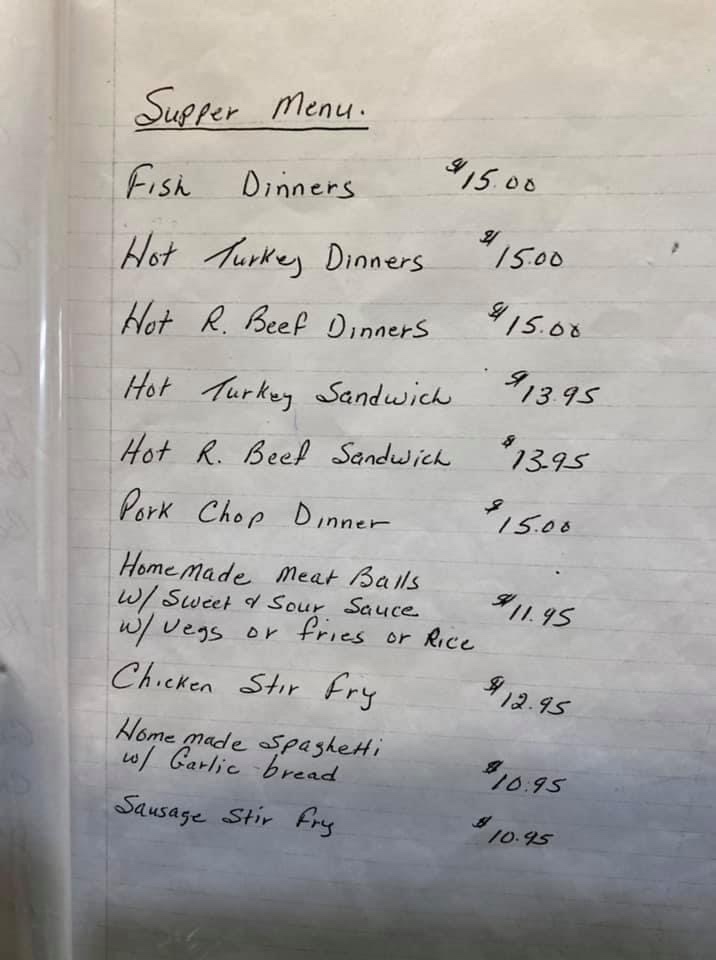 Supper Menu.
Fish Dinners $15.00
Hot Turkey Dinners $15.00
Hot R. Beef Dinners $15.00
Hot Turkey Sandwich $13.95
Hot R. Beef Sandwich $13.95
Pork Chop Dinner $15.00
Homemade Meat Balls
w/ Sweet & Sour Sauce $11.95
w/ Vegs or fries or Rice
Chicken Stir Fry $12.95
Home made Spaghetti
w/ Garlic bread $10.95
Sausage Stir Fry $10.95